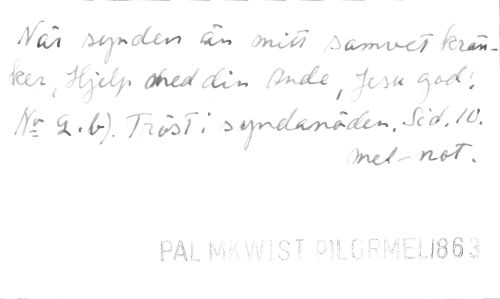 När synden än mitt samvet krän-
ker, Hjelp med din Ande, Jesu god!
No 9. b). Tröst i syndanöden. Sid. 10.
mel-not.
PALMKWIST PILGRMEL 1863